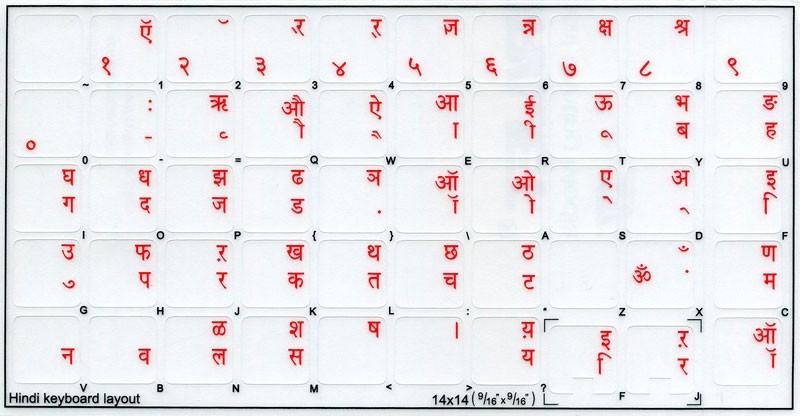 ऍ ॅ ्र र् ज्ञ त्र क्ष श्र
१ २ ३ ४ ५ ६ ७ ८ ९
~ 1 2 3 4 5 6 7 8 9
: ऋ औ ऐ आ ई ऊ भ ङ
० - ृ ौ ै ा ी ू ब ह
0 - = Q W E R T Y U
घ ध झ ढ ञ ऑ ओ ए अ इ
ग द ज ड ़ ॉ ो े ् ि
I O P { } \ A S D F
उ फ ऱ ख थ छ ठ ँ ण
ु प र क त च ट ॐ ं म
G H J K L : " Z X C
ळ श ष । य़ इ ऱ ऑ
न व ल स य ि र ॉ
V B N M < > ? F J
Hindi keyboard layout 14x14 (9/16"x9/16")